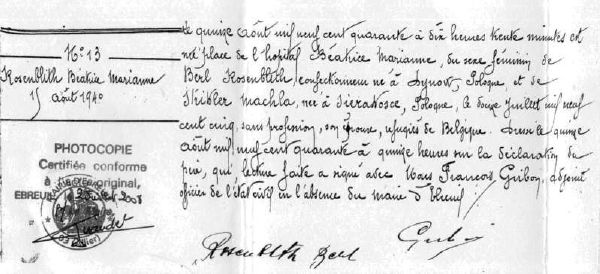 Le quinze Août mil neuf cent quarante à dix heures trente minutes est
né place de l'hopital Béatrice Marianne, du sexe féminin de
Berl Rosenblith confectionneur né à Dynow, Pologne et de
Shikler Machla, née à Sieradosce, Pologne, le douze Juillet mil neuf
cent cinq, sans profession, son épouse, réfugiés de Belgique. Dressé le quinze
Août mil neuf cent quarante à quinze heures sur la déclaration du
père, qui, lecture faite a signé avec Nous François Gribon, adjoint
officier de l'état civil en l'absence du maire d'Ebreuil
Rosenblith Berl
N° 13
Rosenblith Béatrice Marianne
15 août 1940
PHOTOCOPIE
Certifiée conforme
à original,
EBREUIL